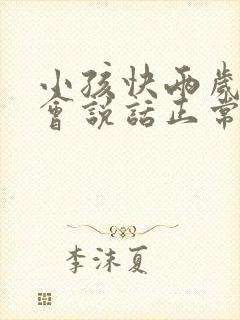 小孩快兩歲
會説話正常
李沫夏